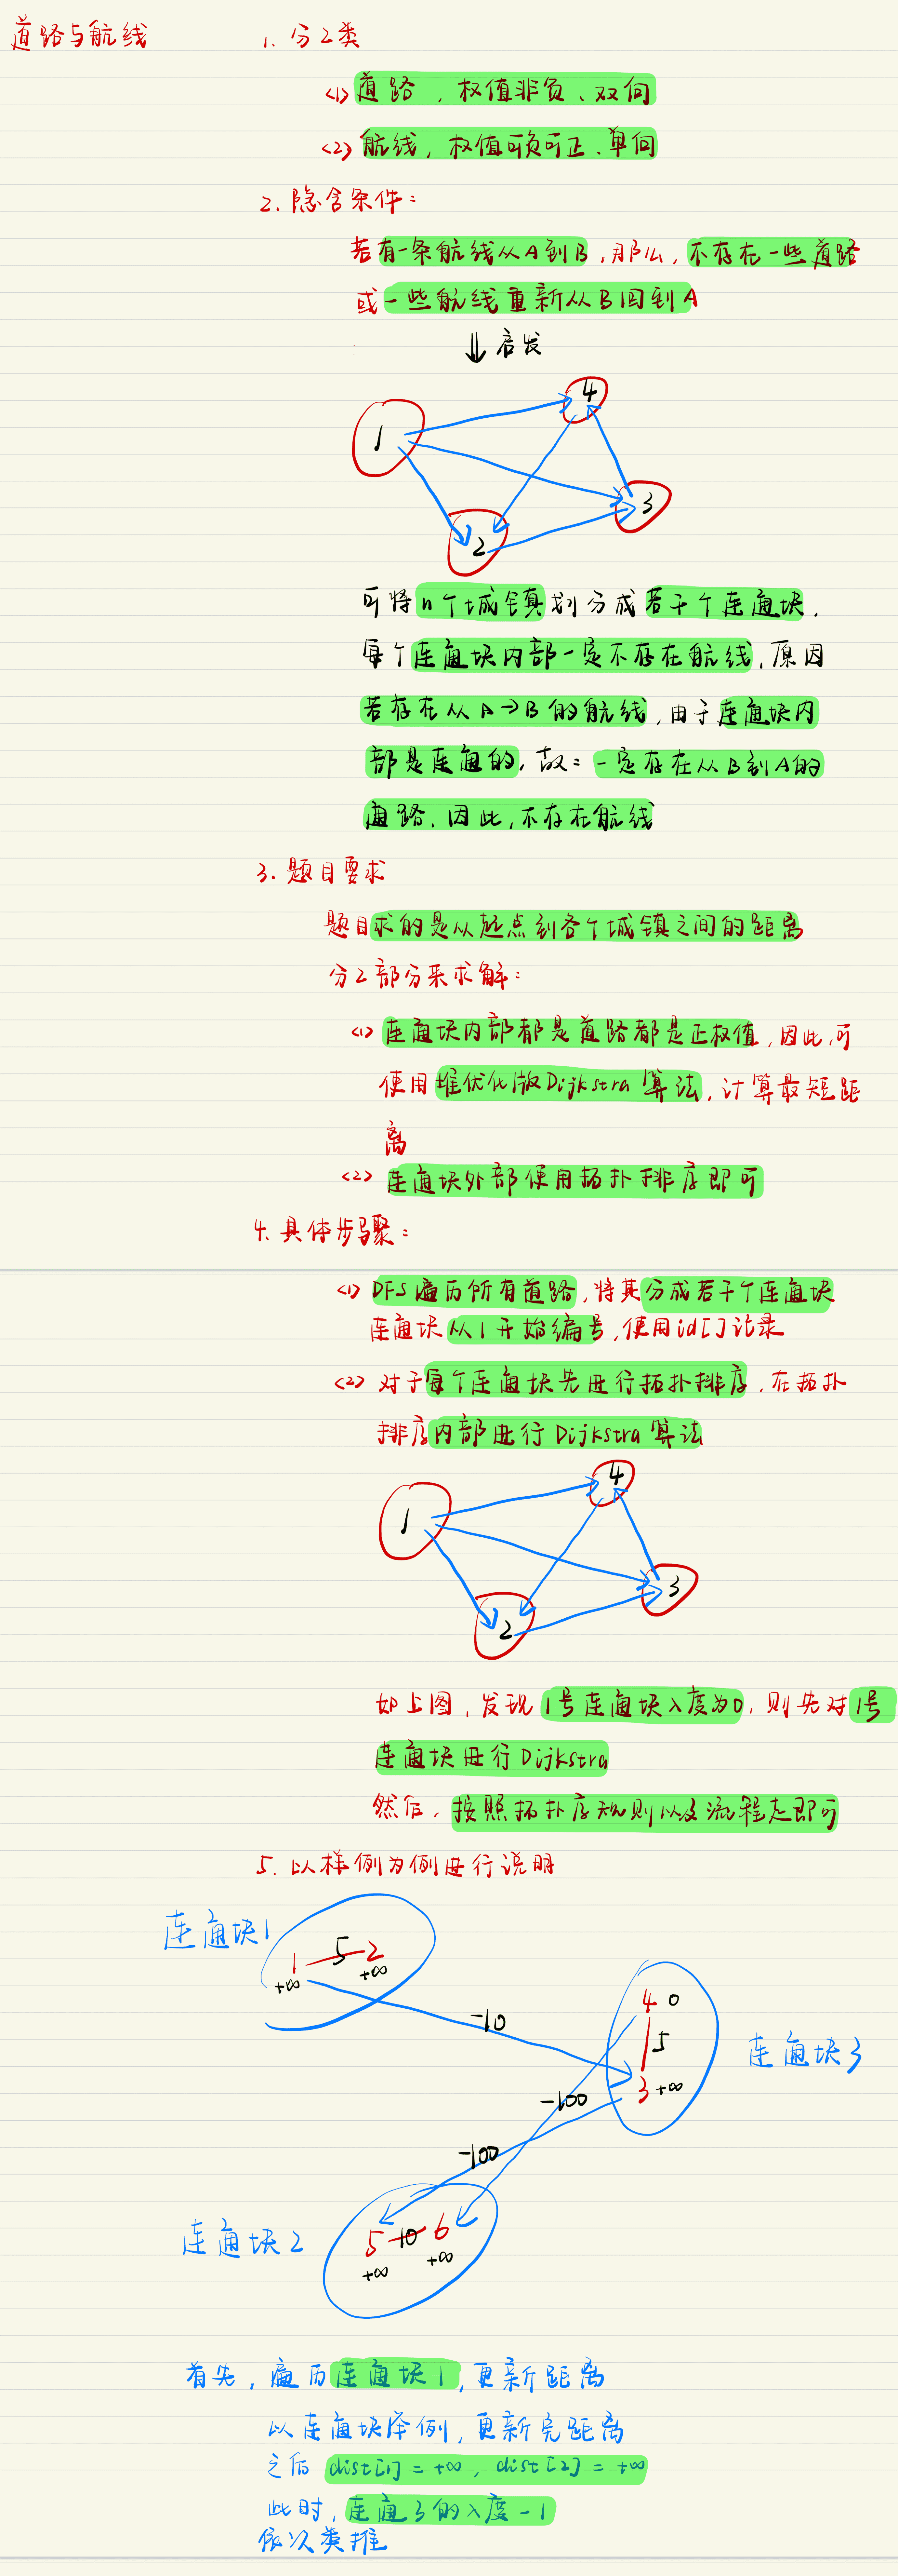 道路与航线
1. 分2类
<1> 道路，权值非负、双向
<2> 航线，权值可负可正、单向
2. 隐含条件：
若有一条航线从A到B，那么，不存在一些道路
或一些航线重新从B回到A
⇓ 启发
1
4
3
2
可将n个城镇划分成若干个连通块，
每个连通块内部一定不存在航线，原因
若存在从A→B的航线，由于连通块内
部是连通的，故：一定存在从B到A的
道路，因此，不存在航线
3. 题目要求
题目求的是从起点到各个城镇之间的距离
分2部分来求解：
<1> 连通块内部都是道路都是正权值，因此，可
使用堆优化版Dijkstra算法，计算最短距
离
<2> 连通块外部使用拓扑排序即可
4. 具体步骤：
<1> DFS遍历所有道路，将其分成若干个连通块
连通块从1开始编号，使用id[]记录
<2> 对于每个连通块先进行拓扑排序，在拓扑
排序内部进行Dijkstra算法
1
4
3
2
如上图，发现1号连通块入度为0，则先对1号
连通块进行Dijkstra
然后，按照拓扑序规则以及流程走即可
5. 以样例为例进行说明
连通块1
1 5 2
+∞ +∞
-10
4 0
5
3 +∞
连通块3
-100
-100
连通块2
5 10 6
+∞ +∞
首先，遍历连通块1，更新距离
以连通块举例，更新完距离
之后 dist[1] = +∞，dist[2] = +∞
此时，连通3的入度-1
依次类推